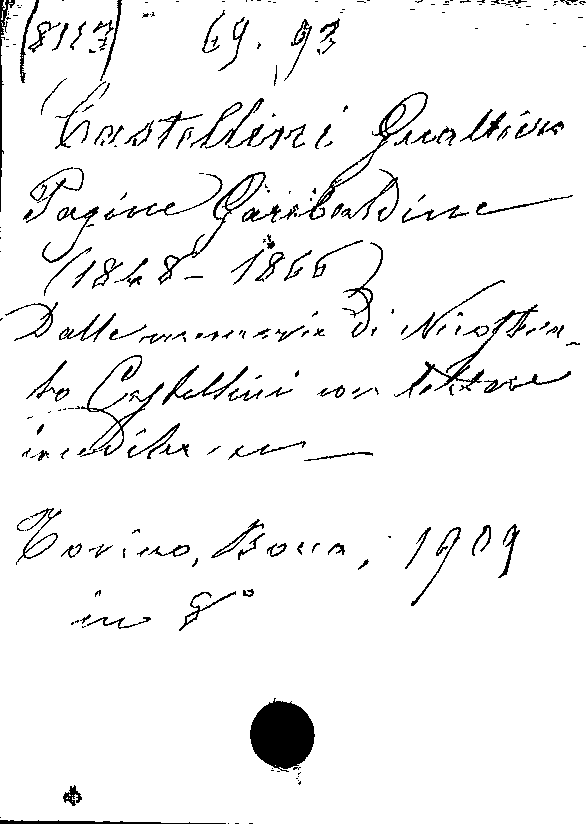 (8123) 69. 93
Castellini Gualtiero
Pagine Garibaldine
(1848-1866)
Dalle memorie di Nicostra-
to Castellini con lettere
inedite
Torino, Bocca, 1909
in 8°